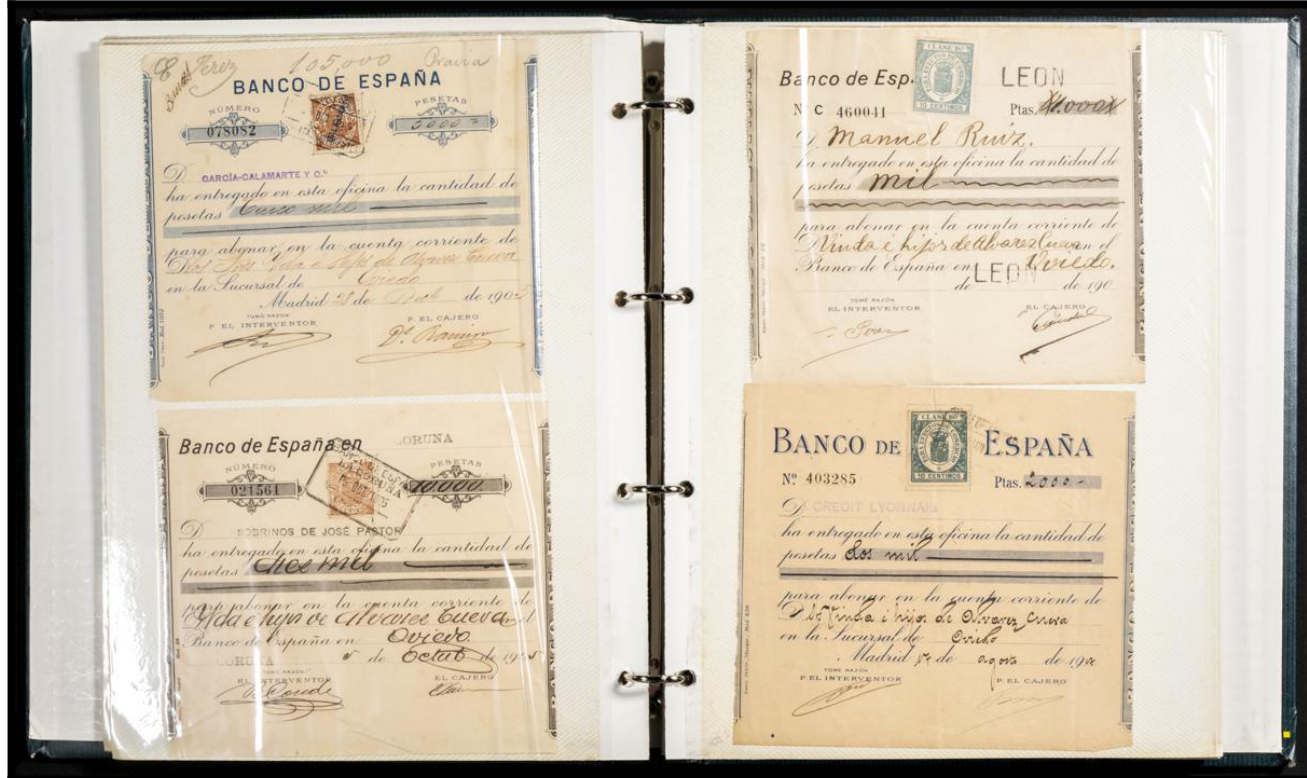 Perez 105,000 Pravia
BANCO DE ESPAÑA
NÚMERO PESETAS
078082 5000
D. GARCÍA-CALAMARTE Y C.ª
ha entregado en esta oficina la cantidad de
pesetas Cinco mil
para abonar en la cuenta corriente de
Vda e hijos de Alvarez Cueva
en la Sucursal de Oviedo
Madrid 28 de de 1905
TOMÉ RAZÓN
P. EL INTERVENTOR P. EL CAJERO
Ramiro
Banco de España en CORUNA
NÚMERO PESETAS
021561 10,000
BANCO DE ESPAÑA
LA CORUÑA
D SOBRINOS DE JOSÉ PASTOR
ha entregado en esta oficina la cantidad de
pesetas diez mil
para abonar en la cuenta corriente de
Vda e hijos de Alvarez Cueva en el
Banco de España en Oviedo
CORUNA 5 de Octub de 1905
TOMÉ RAZÓN
EL INTERVENTOR EL CAJERO
CLASE 10ª
10 CENTIMOS
Banco de Esp. LEON
Nº C 460041 Ptas.
D. Manuel Ruiz.
ha entregado en esta oficina la cantidad de
pesetas mil
para abonar en la cuenta corriente de
D Viuda e hijos de Alvarez Cueva en el
Banco de España en Oviedo.
de LEON de 190
TOMÉ RAZÓN
EL INTERVENTOR EL CAJERO
CLASE 10ª
10 CENTIMOS
BANCO DE ESPAÑA
Nº 403285 Ptas. 2000-
D CREDIT LYONNAIS
ha entregado en esta oficina la cantidad de
pesetas dos mil
para abonar en la cuenta corriente de
D. Viuda i hijos de Alvarez Cueva
en la Sucursal de Oviedo
Madrid de agosto de 190
TOMÉ RAZÓN
P. EL INTERVENTOR P. EL CAJERO